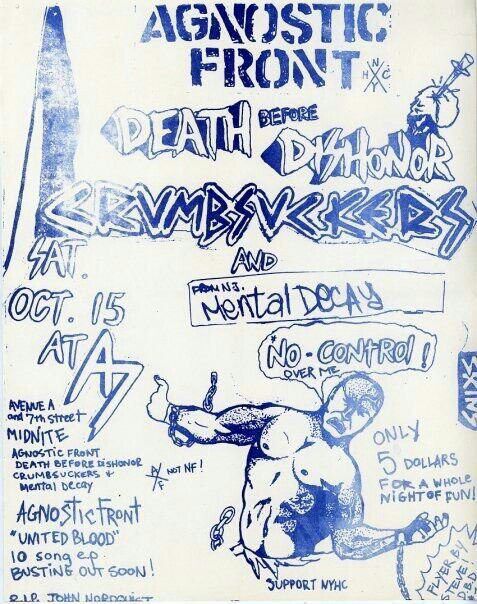 AGNOSTIC
FRONT
N
H C
Y
DEATH BEFORE
DISHONOR
CRUMBSUCKERS
SAT.
OCT. 15
AT A7
AND
FROM N.J.
Mental DECAY
"NO-CONTROl!
OVER ME
AVENUE A
and 7th street
MIDNITE
AGNOSTIC FRONT
DEATH BEFORE DISHONOR
CRUMBSUCKERS &
Mental Decay
NOT NF!
AGNOSTIC FRONT
"UNITED BLOOD"
10 song e.p.
BUSTING OUT SOON!
R.I.P. JOHN NORDQUIST
SKINS
ONLY
5 DOLLARS
FOR A WHOLE
NIGHT OF FUN!
SUPPORT NYHC
FLYER BY
STEVE!
D.B.D